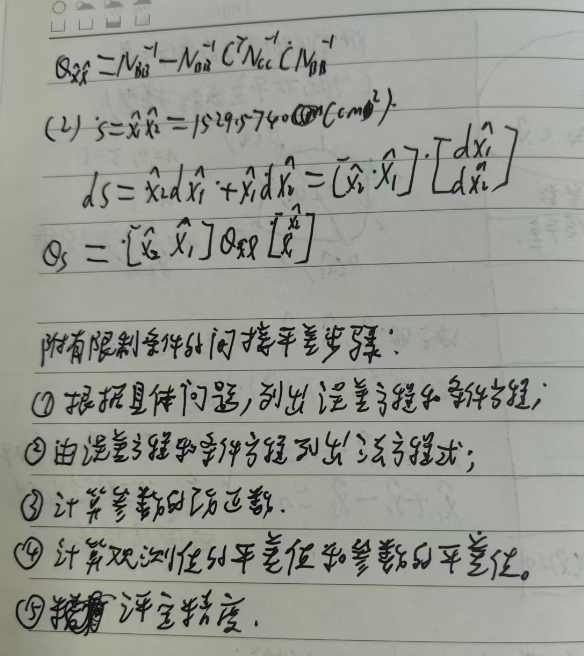 Q_{X̂X̂} = N_{BB}^{-1} - N_{BB}^{-1} C^T N_{CC}^{-1} C N_{BB}^{-1}
(2) S = x̂_1 x̂_2 = 1529.5740 (cm²).
dS = x̂_2 dx̂_1 + x̂_1 dx̂_2 = [x̂_2 x̂_1] · [dx̂_1 dx̂_2]
Q_S = [x̂_2 x̂_1] Q_{X̂X̂} [x̂_2 x̂_1]
附有限制条件的间接平差步骤:
① 根据具体问题,列出误差方程和条件方程;
② 由误差方程和条件方程组成法方程式;
③ 计算参数的改正数.
④ 计算观测值的平差值和参数的平差值。
⑤ 评定精度.